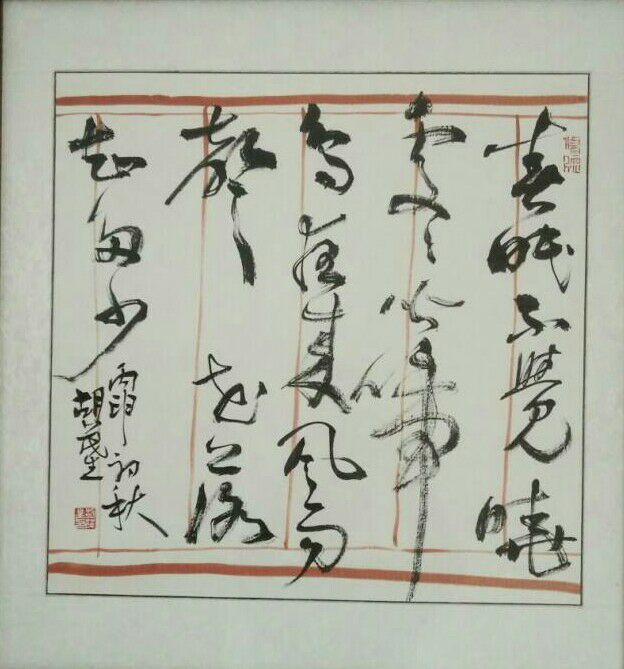 春眠不覺曉
處々聞啼
鳥夜来風雨
聲花落
知多少
初秋
胡